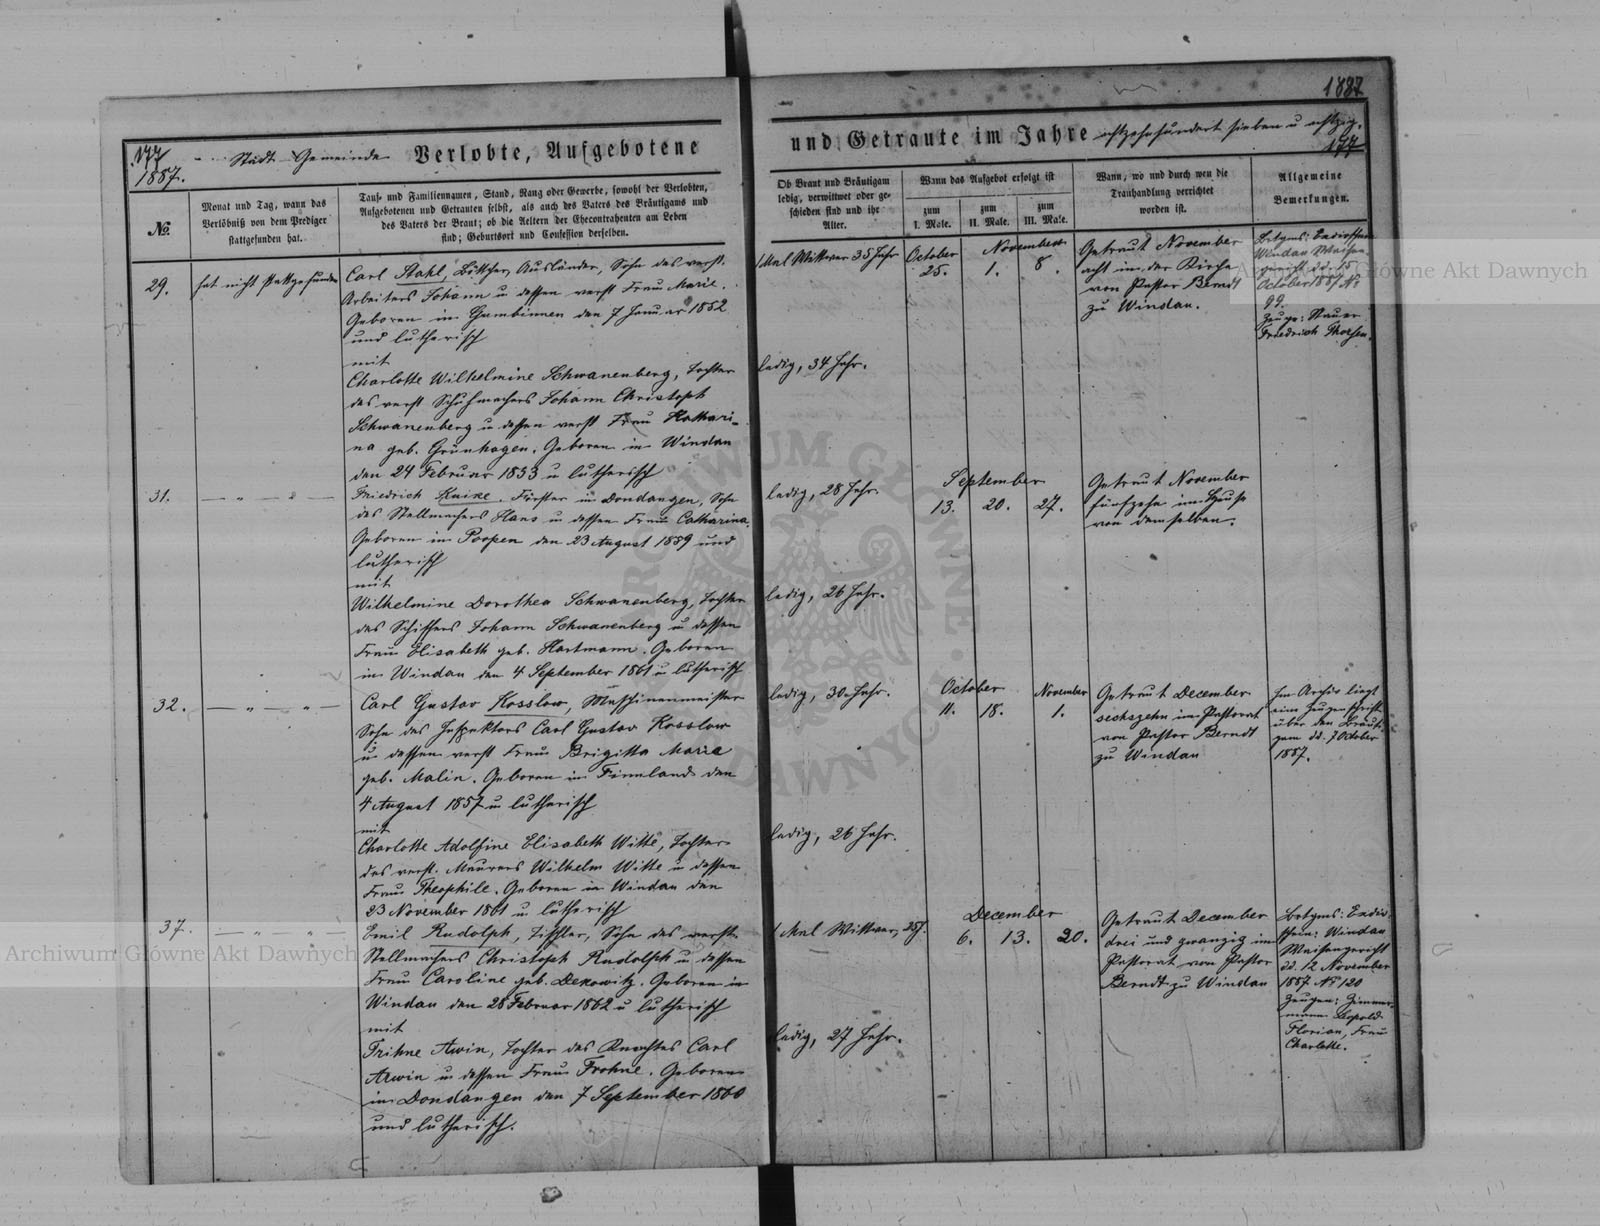 1887
177
1887.
Stadt-Gemeinde Verlobte, Aufgebotene
und Getraute im Jahre achtzehnhundert sieben u achtzig.
177
№.
Monat und Tag, wann das
Verlöbniß von dem Prediger
stattgefunden hat.
Tauf- und Familiennamen, Stand, Rang oder Gewerbe, sowohl der Verlobten,
Aufgebotenen und Getrauten selbst, als auch des Vaters des Bräutigams und
des Vaters der Braut; ob die Aeltern der Ehecontrahenten am Leben
sind; Geburtsort und Confession derselben.
Ob Braut und Bräutigam
ledig, verwittwet oder ge-
schieden sind und ihr
Alter.
Wann das Aufgebot erfolgt ist
zum
I. Male.
zum
II. Male.
zum
III. Male.
Wann, wo und durch wen die
Trauhandlung verrichtet
worden ist.
Allgemeine
Bemerkungen.
29.
hat nicht stattgefunden
Carl Stahl, Böttcher, Ausländer, Sohn des verst.
Arbeiters Johann u dessen verst Frau Marie.
Geboren in Gumbinnen den 7 Januar 1852
und lutherisch
mit
Charlotte Wilhelmine Schwanenberg, Tochter
des verst Schuhmachers Johann Christoph
Schwanenberg u dessen verst Frau Kathari-
na geb. Grünhagen. Geboren in Windau
den 24 Februar 1853 u lutherisch
1 Mal Wittwer 35 Jahr
ledig, 34 Jahr.
October
25.
November
1. 8.
Getraut November
acht in der Kirche
von Pastor Berndt
zu Windau.
Windau Waisen
October 1887 №
99.
Zeuge: Stauer
Friedrich
31.
— " — " —
Friedrich Kuike, Förster in Dondangen, Sohn
des Stellmachers Hans u dessen Frau Catharina.
Geboren in Poopen den 23 August 1859 und
lutherisch
mit
Wilhelmine Dorothea Schwanenberg, Tochter
des Schiffers Johann Schwanenberg u dessen
Frau Elisabeth geb. Hartmann. Geboren
in Windau den 4 September 1861 u lutherisch
ledig, 28 Jahr.
ledig, 26 Jahr.
September
13. 20. 27.
Getraut November
fünfzehn im Hause
von demselben.
32.
— " — " —
Carl Gustav Kosslow, Maschinenmeister
Sohn des Inspektors Carl Gustav Kosslow
u dessen verst Frau Brigitta Maria
geb. Malin. Geboren in Finnland den
4 August 1857 u lutherisch
mit
Charlotte Adolfine Elisabeth Witte, Tochter
des verst. Maurers Wilhelm Witte u dessen
Frau Theophile. Geboren in Windau den
23 November 1861 u lutherisch
ledig, 30 Jahr.
ledig, 26 Jahr.
October
11. 18.
November
1.
Getraut December
sechszehn im Pastorat
von Pastor Berndt
zu Windau
Im Archiv liegt
eine Zeugenschrift
über den Bräuti-
gam dd. 7 October
1887.
37.
— " — " —
Emil Rudolph, Tischler, Sohn des verst.
Stellmachers Christoph Rudolph u dessen
Frau Caroline geb. Dekowitz. Geboren in
Windau den 28 Februar 1862 u lutherisch
mit
Trihne Awin, Tochter des Knechtes Carl
Arwin u dessen Frau Trohne. Geboren
in Dondangen den 7 September 1860
und lutherisch.
1 Mal Wittwer, 25 J.
ledig, 27 Jahr.
December
6. 13. 20.
Getraut December
drei und zwanzig im
Pastorat von Pastor
Berndt zu Windau
Windau
Waisengericht
dd. 12 November
1887 № 120
Zeugen: Zimmer-
mann Leopold
Florian, Frau
Charlotte.
Archiwum Główne Akt Dawnych
Archiwum Główne Akt Dawnych
ARCHIWUM GŁÓWNE · AKT DAWNYCH